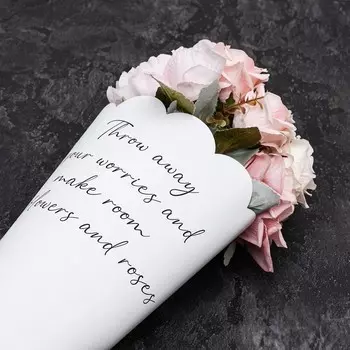 Throw away
your worries and
make room
flowers and roses